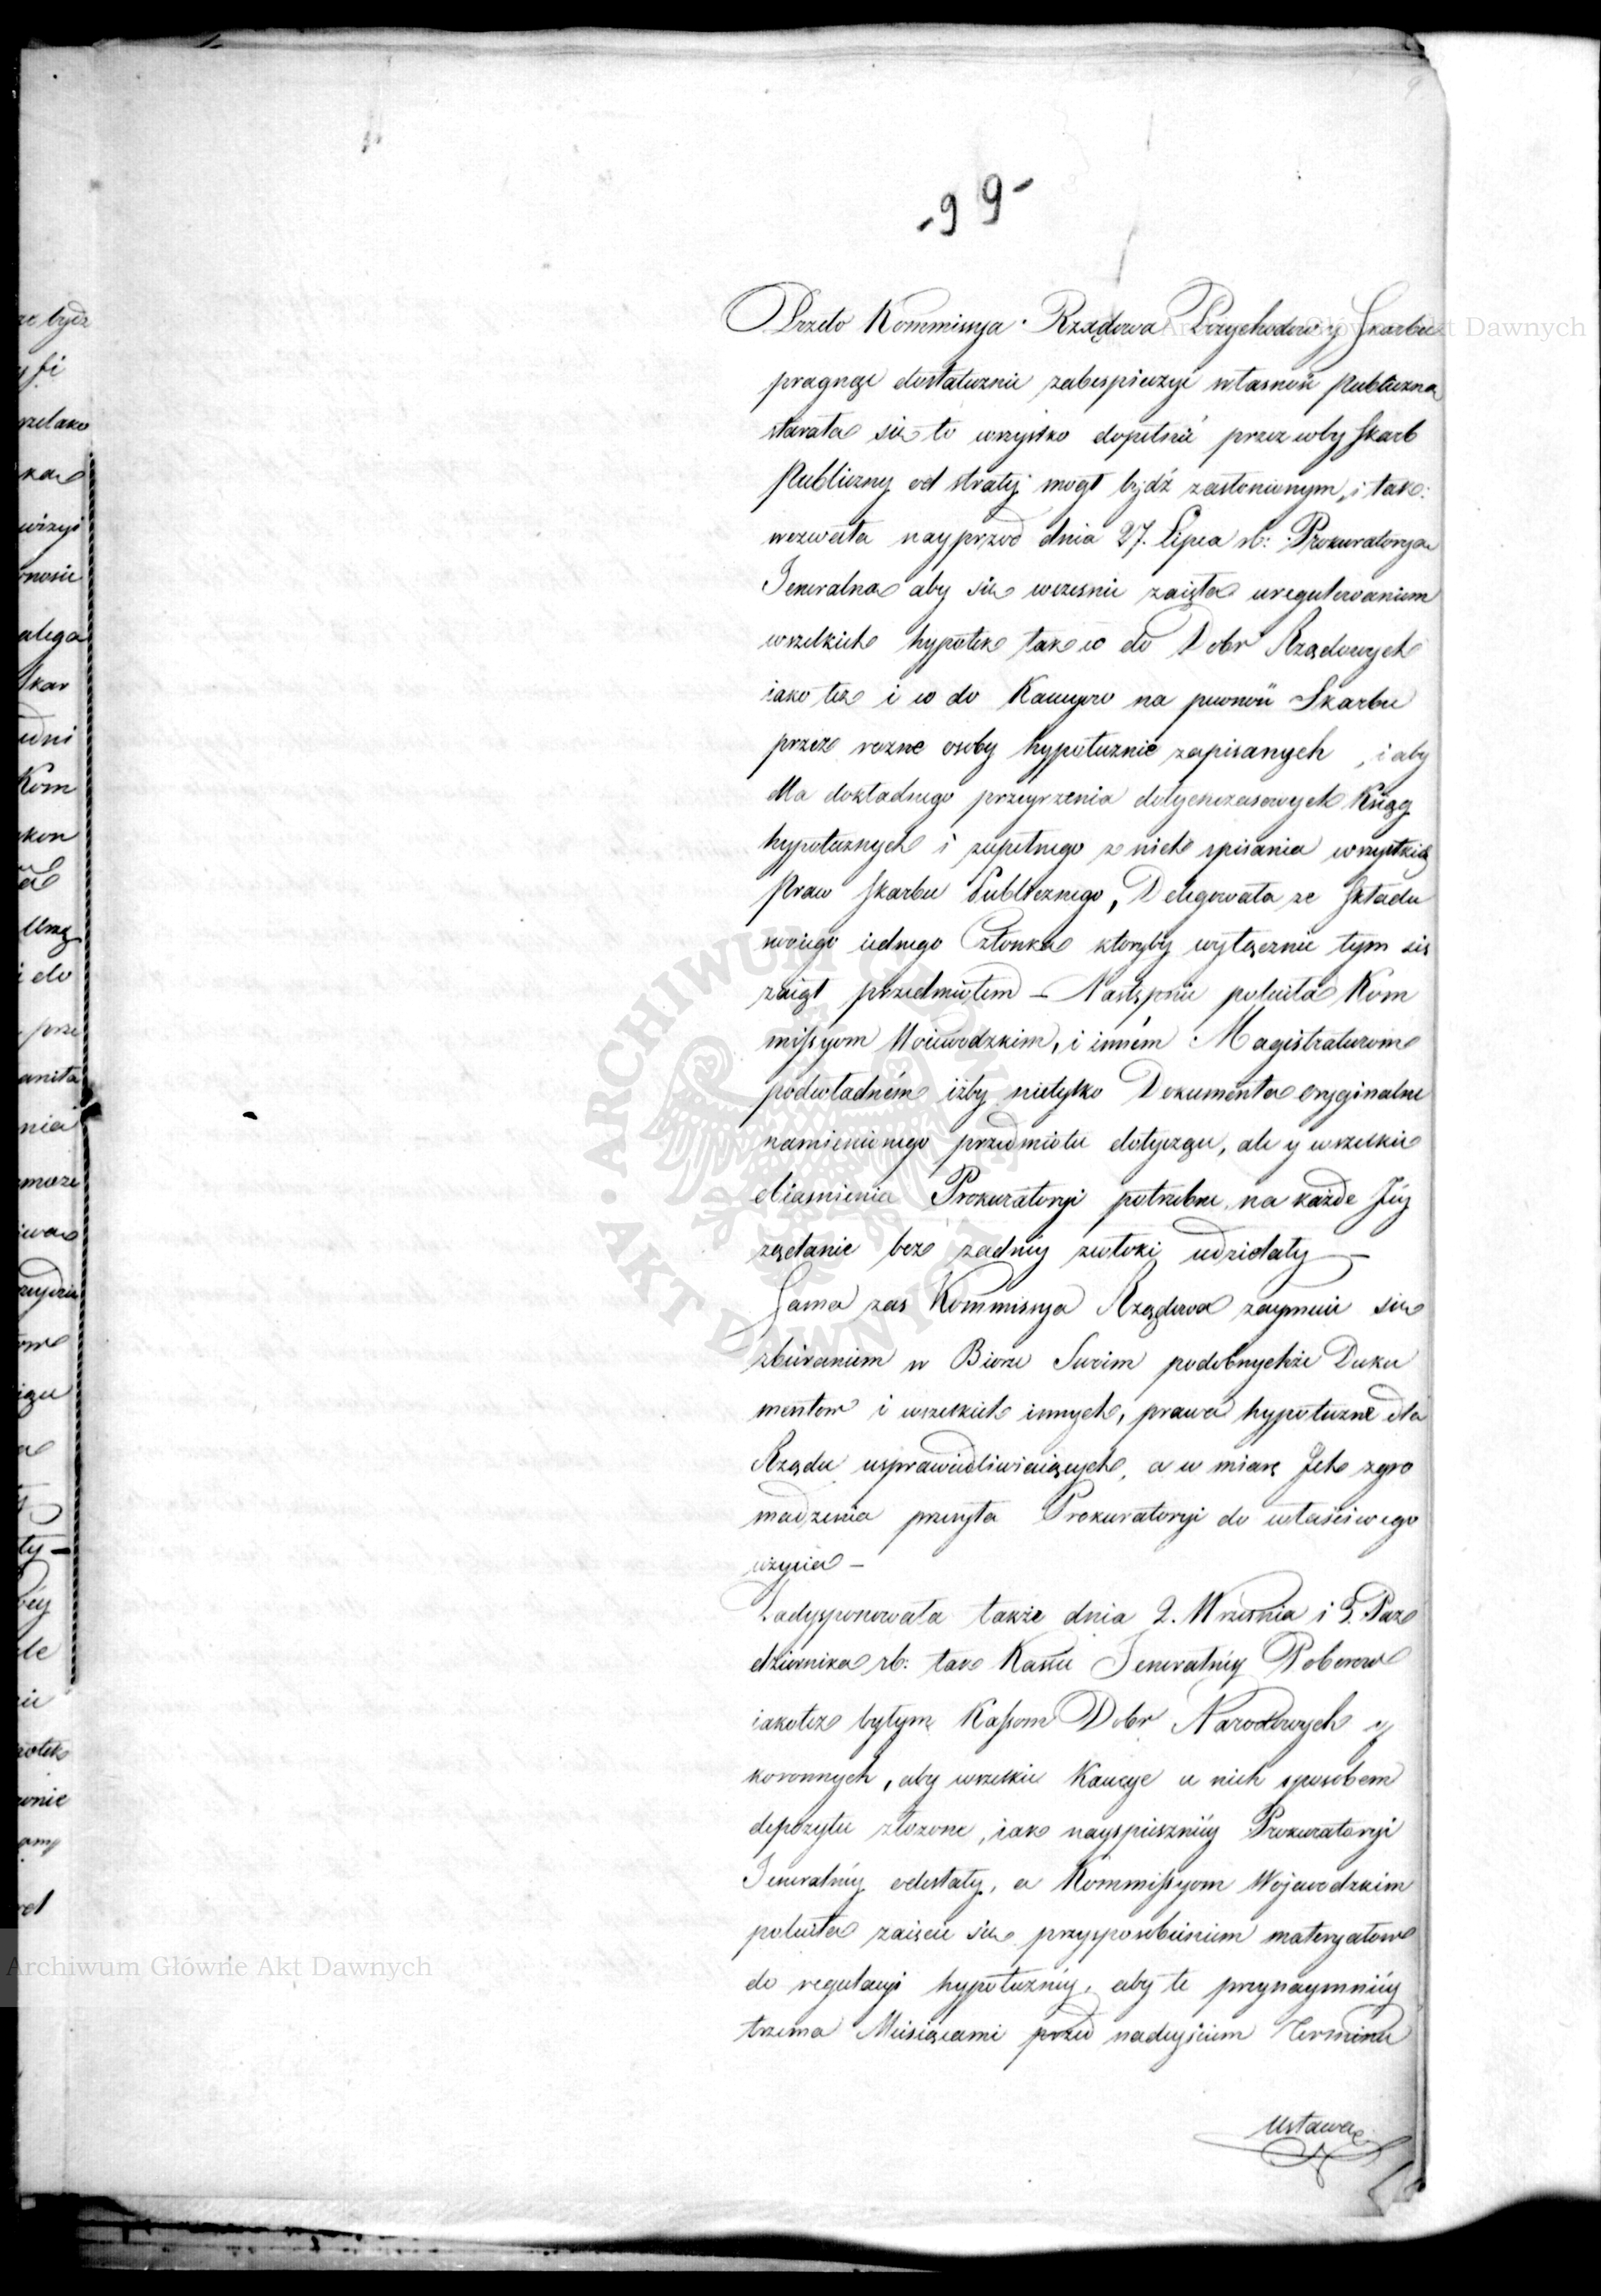 -99-
Przeto Kommissya Rządowa Przychodow y Skarbu
pragnąc dostatecznie zabespieczyc własność Publiczną
starała się to wszystko dopełnić przez coby Skarb
Publiczny od straty mogł bydź zasłonionym, i tak:
wezwała nayprzod dnia 27. Lipca rb: Prokuratoryą
Jeneralną aby się wcześnie zaięła uregulowaniem
wszelkich hypotek tak co do Dobr Rządowych
iako też i co do Kaucyow na pewność Skarbu
przez rożne osoby hypotecznie zapisanych, i aby
dla dokładnego przeyrzenia dotychczasowych Ksiąg
hypotecznych i zupełnego z nich spisania wszystkich
Praw Skarbu Publicznego, Delegowała ze Składu
swoiego iednego Członka ktoryby wyłącznie tym się
zaiął przedmiotem – Następnie poleciła Kom
missyom Woiewodzkim, i innem Magistraturom
podwładném iżby nietylko Dokumenta oryginalne
namienionego przedmiotu dotyczące, ale y wszelkie
obiasnienia Prokuratoryi potrzebne, na każde Jéy
żądanie bez żadnéy zwłoki udzielały –
Sama zas Kommissya Rządowa zaymuie się
zbieraniem w Biorze Swoim podobnychże Doku
mentow i wszelkich innych, prawa hypoteczne dla
Rządu usprawiedliwiaiących, a w miarę Jch zgro
madzenia przesyła Prokuratoryi do właściwego
użycia –
Zadysponowała także dnia 2. Września i 9. Paz
dziernika rb: tak Kassie Jeneralnéy Poborow
iakoteż byłym Kassom Dobr Narodowych y
koronnych, aby wszelkie Kaucye u nich sposobem
depozytu złożone, iak nayspieszniéy Prokuratoryi
Jeneralnéy odesłały, a Kommissyom Wojewodzkim
poleciła zaięcie się przysposobieniem materyałow
do regulacyi hypotecznéy, aby te przynaymniéy
trzema Miesiącami przed nadeyściem Terminu
Ustawą
Archiwum Główne Akt Dawnych
Archiwum Główne Akt Dawnych
ARCHIWUM GŁÓWNE AKT DAWNYCH